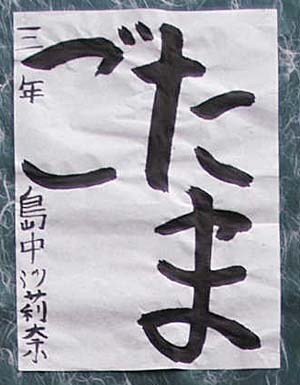 たま
ご
三年 島中沙莉奈